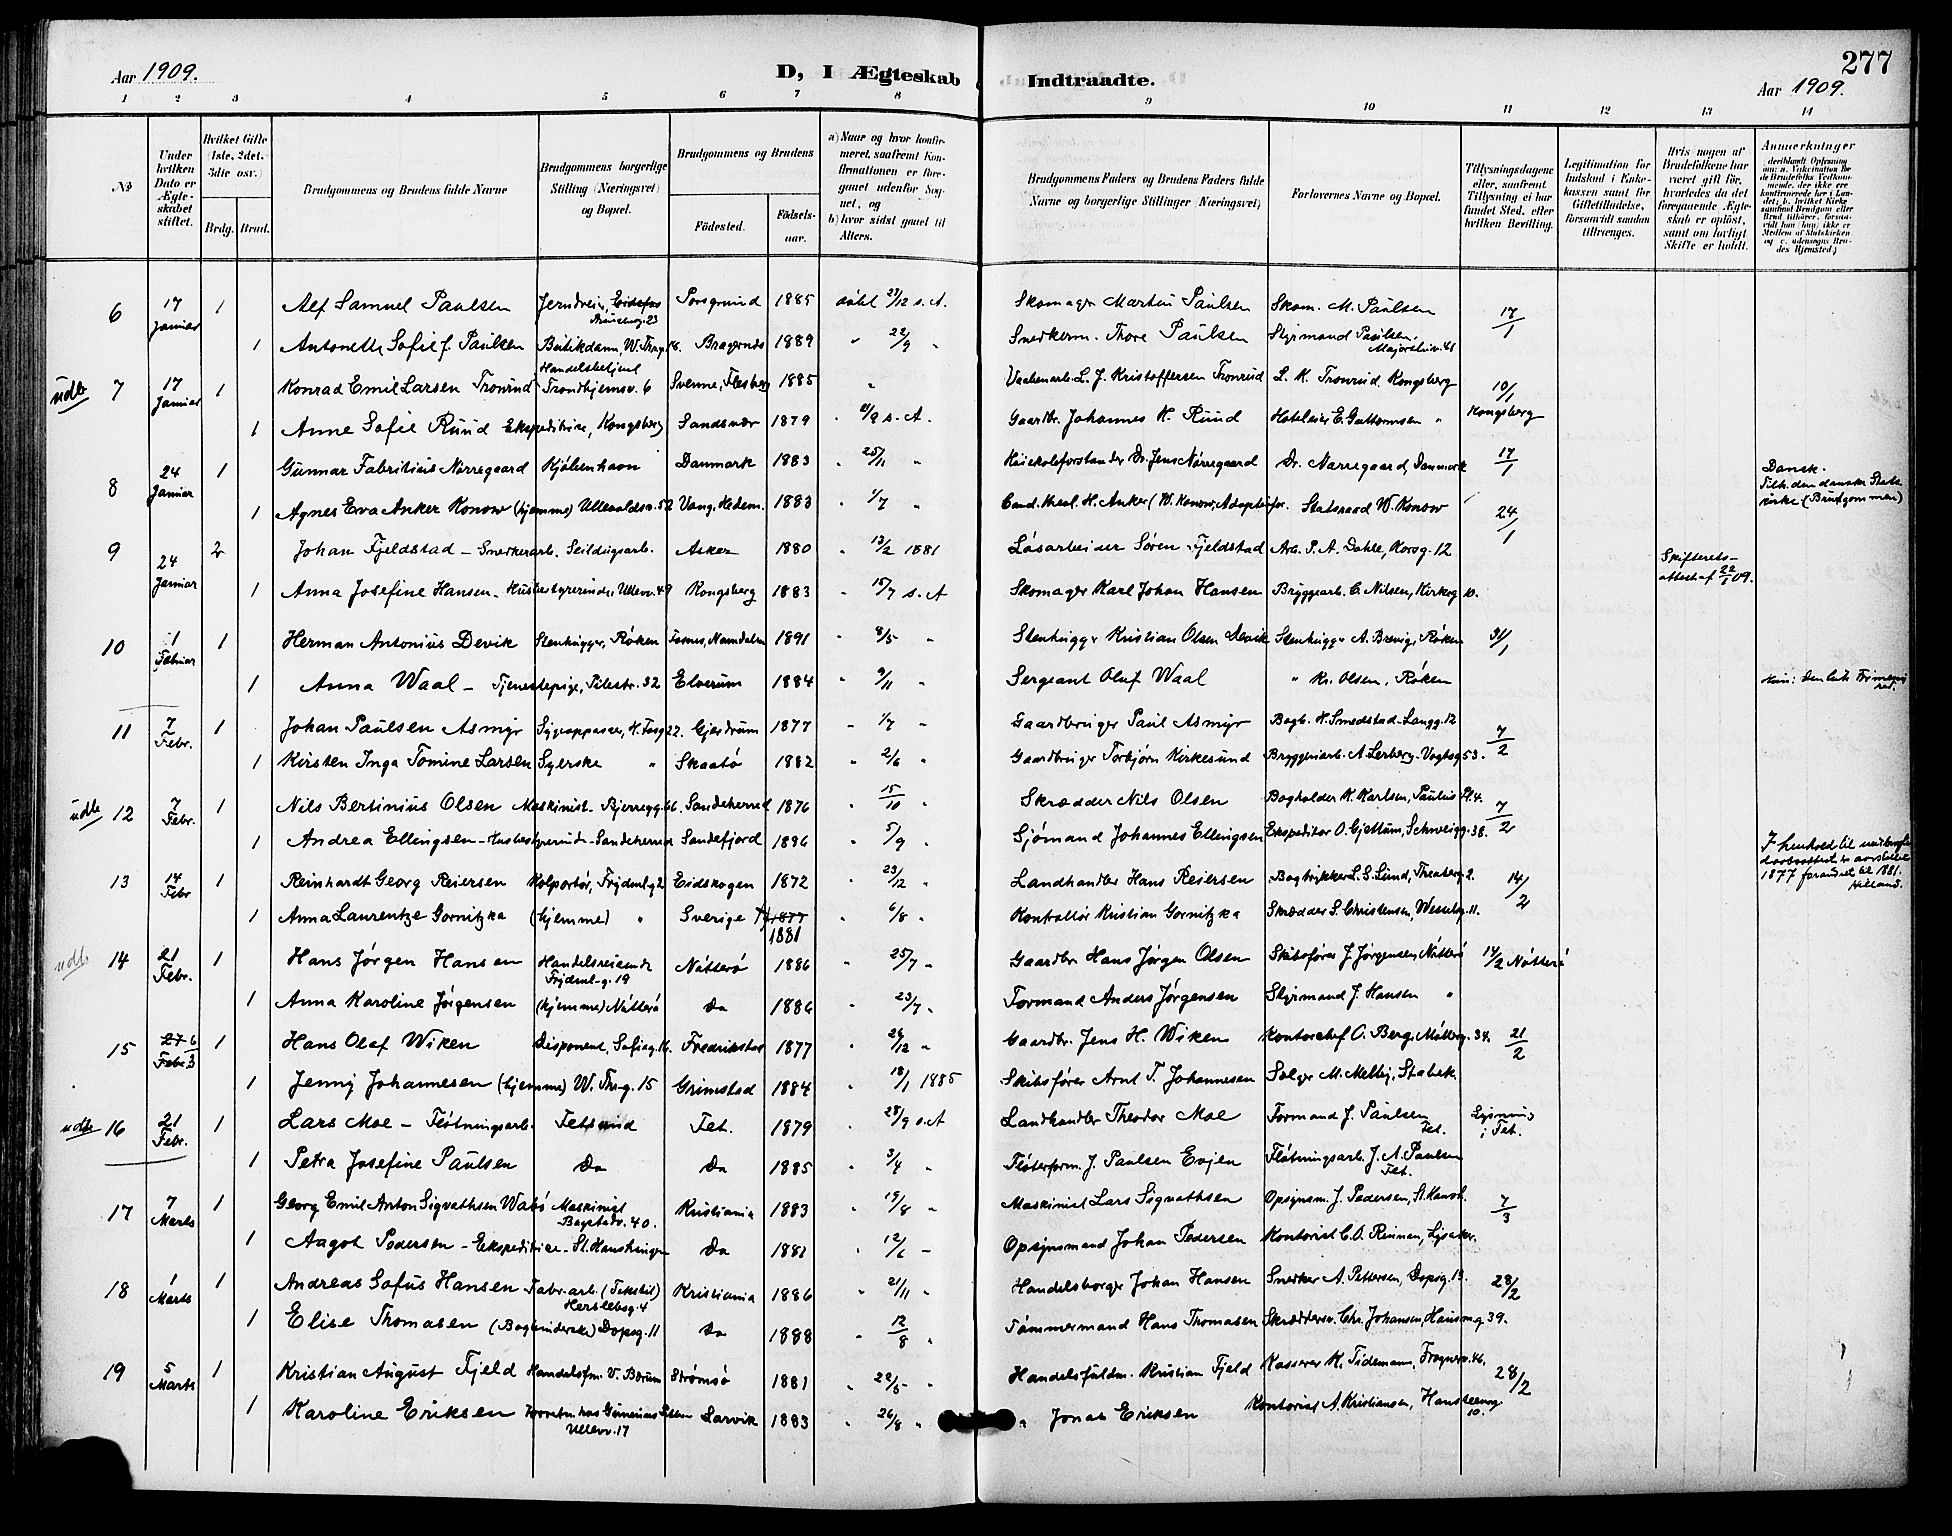 277
Aar 1909.
D, I Ægteskab Indtraadte.
Aar 1909.
1 2 3 4 5 6 7 8 9 10 11 12 13 14
№
Under hvilken Dato er Ægteskabet stiftet.
Hvilket Gifte (1ste, 2det, 3die osv.)
Brdg. Brud.
Brudgommens og Brudens fulde Navne
Brudgommens borgerlige Stilling (Næringsvei) og Bopæl.
Brudgommens og Brudens
Fødested.
Fødselsaar.
a) Naar og hvor konfirmeret, saafremt Konfirmationen er foregaaet udenfor Sognet, og
b) hvor sidst gaaet til Alters.
Brudgommens Faders og Brudens Faders fulde Navne og borgerlige Stillinger (Næringsvei)
Forlovernes Navne og Bopæl.
Tillysningsdagene eller, saafremt Tillysning ei har fundet Sted, efter hvilken Bevilling.
Legitimation for Indskud i Enkekassen samt for Giftetilladelse, forsaavidt saadan tiltrænges.
Hvis nogen af Brudefolkene har været gift før, hvorledes da det foregaaende Ægteskab er opløst, samt om lovligt Skifte er holdt.
Anmærkninger
6 17 Januar 1 Alf Samuel Paulsen Porsgrund 1885 døbt 23/12 s. A. Skomager Martin Paulsen Skom. M. Paulsen 17/1
1 Antonette Sofie f. Paulsen Butikdame, W. Thrg. 18. Bragernes 1889 " 22/9 " Snedkerm. Thore Paulsen Styrmand Paulsen, Majorstuv. 41
udb 7 17 Januar 1 Konrad Emil Larsen Tronrud Handelsbetjent Trondhjemsv. 6 Svenne, Flesberg 1885 " Vaabenarb. L. J. Kristoffersen Tronrud L. K. Tronrud, Kongsberg 10/1 Kongsberg
1 Anne Sofie Ruud Ekspeditrice, Kongsberg Sandsvær 1879 s. A. Gaardbr. Johannes H. Ruud Hoteleier E. Guttormsen "
8 24 Januar 1 Gunnar Fabritius Nørregaard Kjøbenhavn Danmark 1883 " 25/11 " Høiskoleforstander Dr. Jens Nørregaard Dr. Nørregaard, Danmark 17/1 Dansk. Tilh. den danske Statskirke (Brudgommen)
1 Agnes Eva Anker Konow (hjemme) Ullevoldsv. 52 Vang, Hedem. 1883 " 1/7 " Cand. theol. H. Anker (W. Konow, Adoptivfar. Statsraad W. Konow 24/1
9 24 Januar 2 Johan Fjeldstad - Snedkerarb. Seildugsarb. Asker 1880 " 13/2 1881 Løsarbeider Søren Fjeldstad Arb. P. A. Dahle, Korsg. 12 Skifterets-attest af 22/1 09.
1 Anna Josefine Hansen - Husbestyrerinde, Ullevv. 49 Kongsberg 1883 " 15/7 s. A Skomager Karl Johan Hansen Bryggearb. C. Nilsen, Kirkeg 10.
10 1 Februar 1 Herman Antonius Devik Stenhugger, Røken Fosnes, Namdalen 1891 " 8/5 " Stenhugger Kristian Olsen Devik Stenhugger A. Brevig, Røken 31/1
1 Anna Waal - Tjenestepige, Pilestr. 32 Elverum 1884 " 9/11 " Sergeant Oluf Waal " Kr. Olsen, Røken
11 7 Febr. 1 Johan Paulsen Asmyr Sygepasser, K. Torsg 22. Gjerdrum 1877 " 1/7 " Gaardbruger Paul Asmyr Bagb. H. Smedstad - Langg. 12 7/2
1 Kirsten Inga Tomine Larsen Syerske " Skaatø 1882 " 2/6 " Gaardbruger Torbjørn Kirkesund Bryggeriarb. A. Lerberg - Vogtsg. 53.
udb 12 7 Febr. 1 Nils Bertinius Olsen Maskinist - Bjerregg. 66. Sandeherred 1876 " 15/10 " Skrædder Nils Olsen Bogholder K. Karlsen, Paulus Pl. 4. 7/2
1 Andrea Ellingsen - Husbestyrerinde - Sandeherred Sandefjord 1886 " 5/9 " Sjømand Johannes Ellingsen Ekspeditør O. Gjettum, Schweigg. 38.
13 14 Febr 1 Reinhardt Georg Reiersen Kolportør, Frydenl.g 2 Eidskogen 1872 " 23/12 " Landhandler Hans Reiersen Bogtrykker L. S. Lund, Theaterg 2. 14/2
1 Anna Laurentze Gornitzka (hjemme) " Sverige 1877 1881 " 6/8 " Kontrollør Kristian Gornitzka Skrædder S. Christensen, Wesselsg. 11. I henhold til daabsattest er aarstallet 1877 forandret til 1881.
udb 14 21 Febr. 1 Hans Jørgen Hansen Handelsreisende Frydenl.g. 19 Nøtterø 1886 " 25/7 " Gaardbr. Hans Jørgen Olsen Skibsfører J. Jørgensen, Nøtterø 14/2 Nøtterø
1 Anna Karoline Jørgensen (hjemme) Nøtterø Do 1886 " 23/7 " Formand Anders Jørgensen Styrmand J. Hansen "
15 27 6 Febr. 3 1 Hans Olaf Wiken Disponent, Sofieg. 16. Fredrikstad 1877 " 26/12 " Gaardbr. Jens H. Wiken Kontorchef O. Berg, Møllerg. 34. 21/2
1 Jenny Johannesen (hjemme) W. Thr.g. 15 Grimstad 1884 " 18/1 1885 Skibsfører Arnt T. Johannesen Sælger M. Melby, Stabek.
udb 16 21 Febr. 1 Lars Moe - Fløtningsarb. Fetsund Fet. 1879 " 28/9 s. A Landhandler Theodor Moe Formand J. Paulsen Fet. Lysning i Fet.
1 Petra Josefine Paulsen Do Do 1885 " 3/4 " Fløterform. J. Paulsen Evjen Fløtningsarb. J. A. Paulsen Fet.
17 7 Marts 1 Georg Emil Anton Sigvathsen Wabø Maskinist Bogstadv. 40. Kristiania 1883 " 19/8 " Maskinist Lars Sigvathsen Opsynsm. J. Pedersen, St. Hansh. 7/3
1 Aagot Pedersen - Ekspeditrice - St. Hanshaugen Do 1881 " 12/6 - Opsynsmand Johan Pedersen Kontorist C. O. Rinnan, Lysaker.
18 1 Marts 1 Andreas Sofus Hansen Fabr. arb. (Tekstil) Herslebsg. 4 Kristiania 1886 " 21/11 " Handelsborger Johan Hansen Snedker A. Pettersen, Dopsg. 13. 28/2
1 Elise Thomasen (Bogbinderske) Dopsg. 11 Do 1888 " 12/8 " Tømmermand Hans Thomasen Skræddersv. Chr. Johansen, Hausmg. 39.
19 5 Marts 1 Kristian August Fjeld Handelsfm. V. Bærum Strømsø 1881 " 22/5 " Handelsfuldm. Kristian Fjeld Kasserer K. Tidemann, Frognerv. 46. 28/2
1 Karoline Eriksen Ullevv. 17 Larvik 1883 " 26/8 " " Jonas Eriksen Kontorist A. Kristiansen, Hansteensg 10.